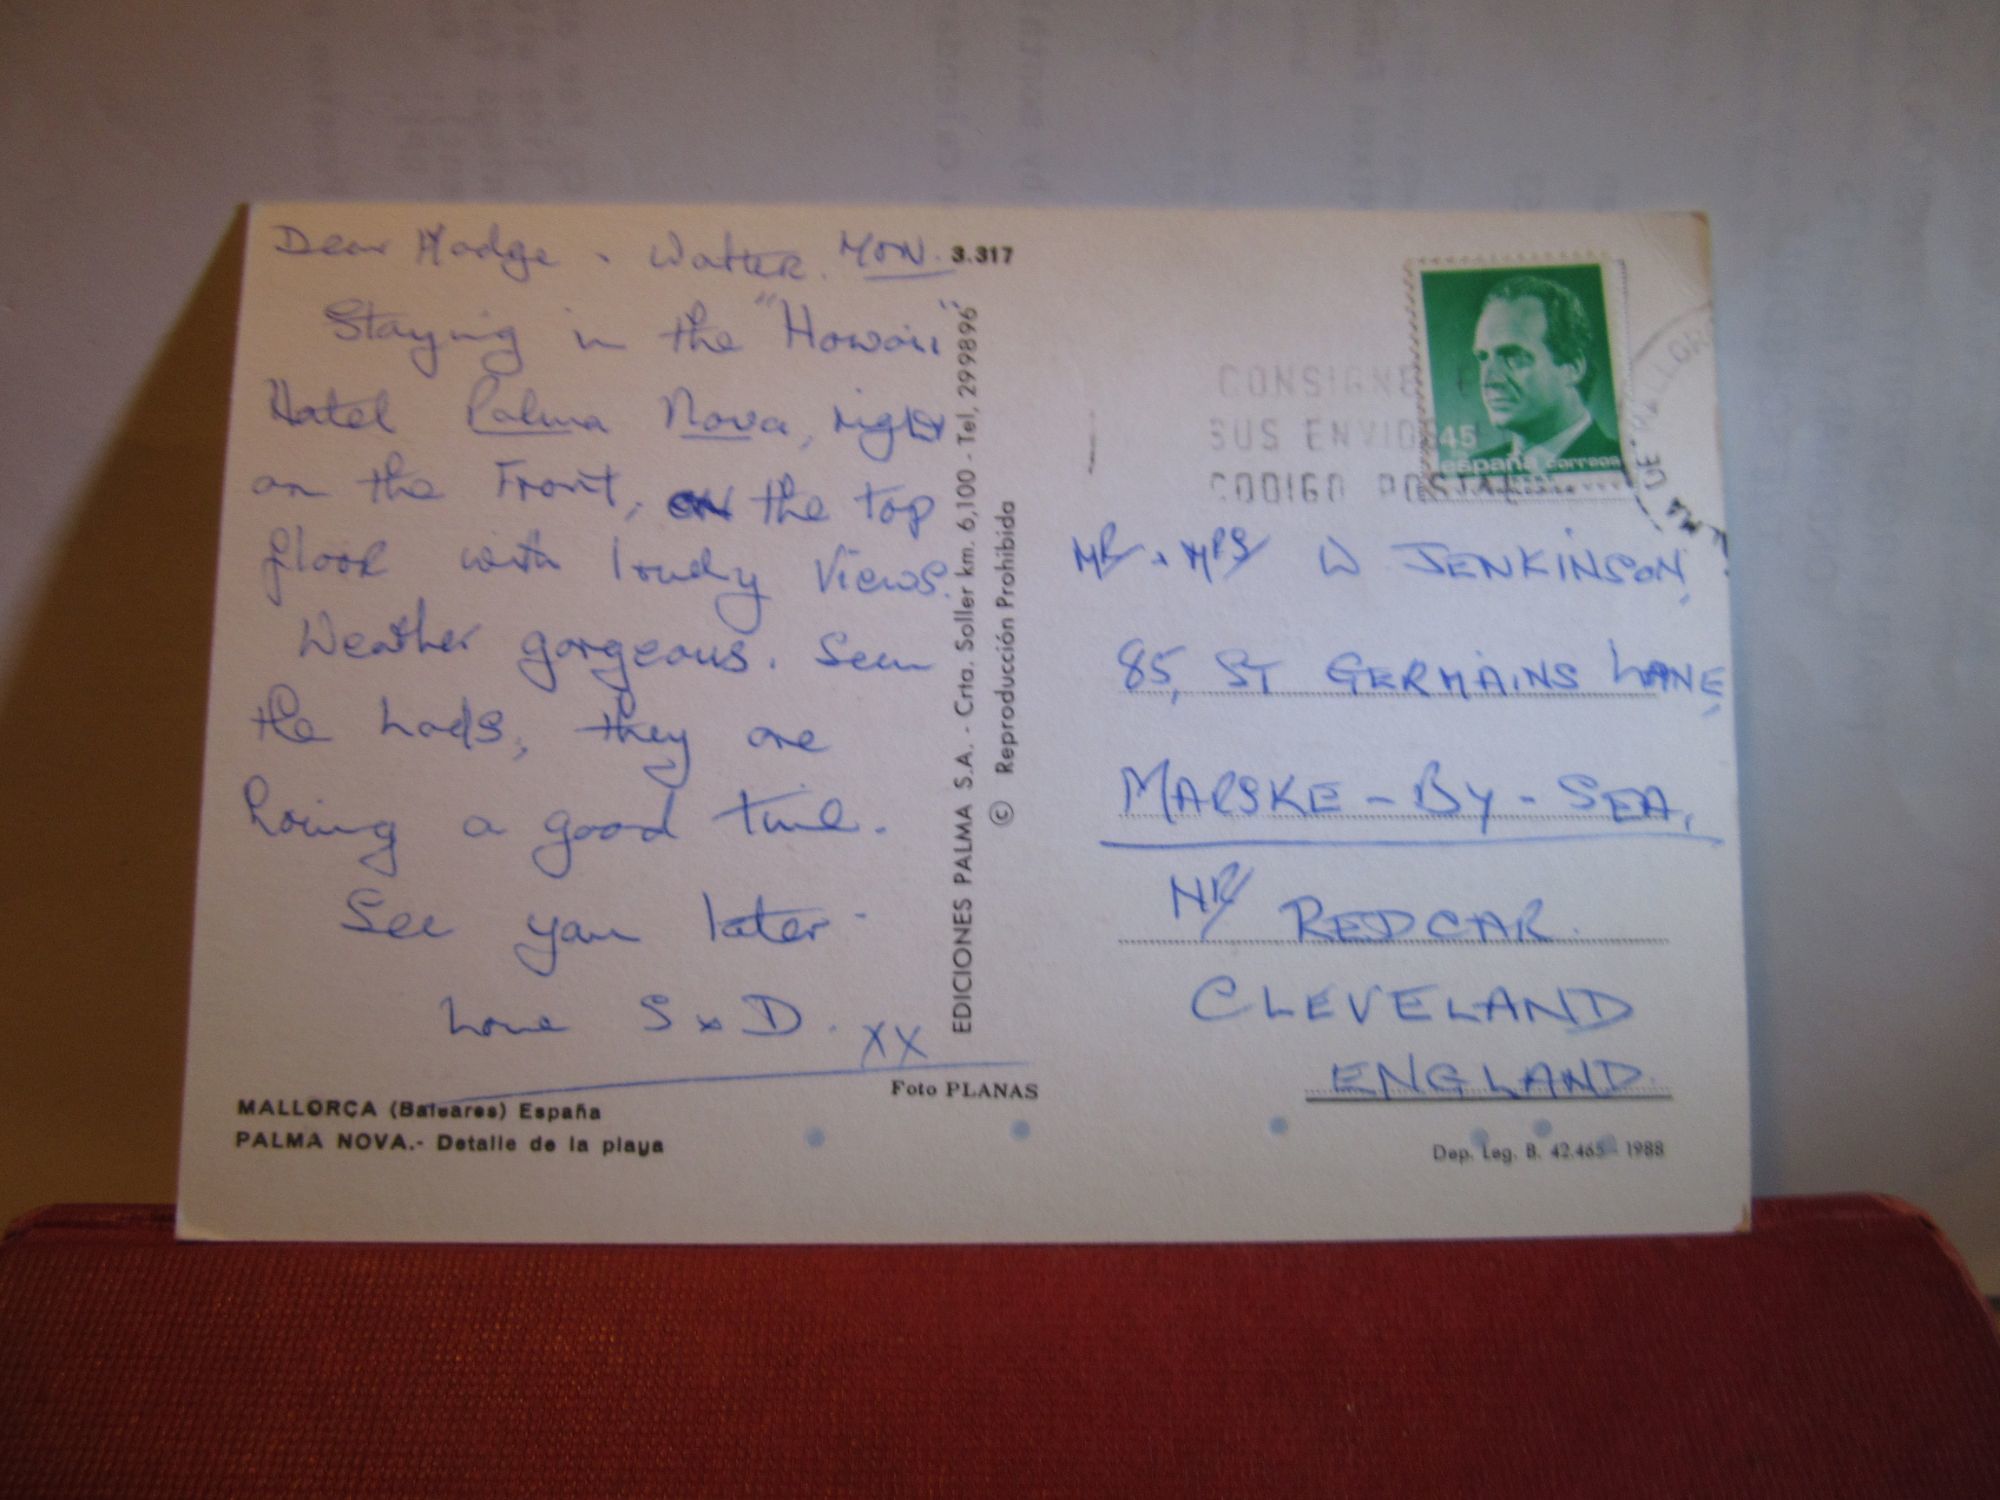 Dear Madge + Walter. MON.
Staying in the "Hawaii"
Hotel Palma Nova, right
on the Front, on the top
floor with lovely views.
Weather gorgeous. Seen
the Lads, they are
having a good time.
See you later.
Love S + D. XX
MALLORCA (Baleares) España
PALMA NOVA.- Detalle de la playa
3.317
EDICIONES PALMA S.A. - Crta. Soller km. 6,100 - Tel, 299896
© Reproducción Prohibida
Foto PLANAS
CONSIGNE
SUS ENVIO
CODIGO POSTAL
45
españa correos
PALMA DE MALLORCA
MR + MRS W JENKINSON,
85, ST GERMAINS LANE,
MARSKE-BY-SEA,
NR REDCAR.
CLEVELAND
ENGLAND.
Dep. Leg. B. 42.465 - 1988